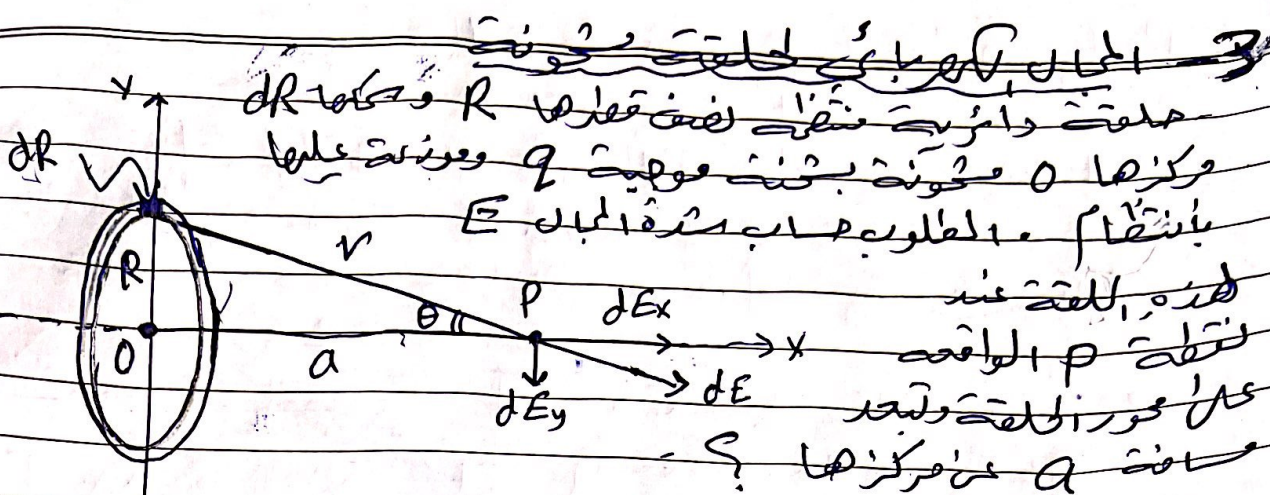 3 - المجال الكهربائي لحلقة مشحونة
حلقة دائرية منتظمة نصف قطرها R وسمكها dR
مركزها O مشحونة بشحنة موجبة q وموزعة عليها
بأنتظام . المطلوب حساب شدة المجال E
لهذه الحلقة عند
نقطة P الواقعه
على محور الحلقة وتبعد
مسافة a عن مركزها ؟
Y
dR
R
r
θ
P
dEx
X
O
a
dE
dEy